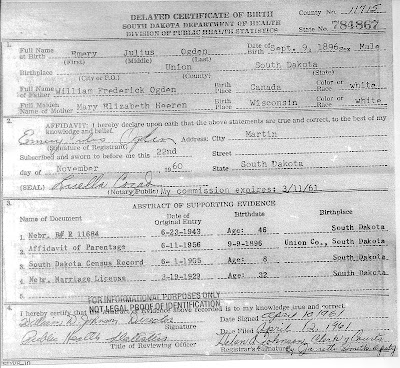 DELAYED CERTIFICATE OF BIRTH
County No. 11715
SOUTH DAKOTA DEPARTMENT OF HEALTH
State No. 784867
DIVISION OF PUBLIC HEALTH STATISTICS
1.
Full Name at Birth Emery Julius Ogden Date of Birth Sept. 9, 1896 Sex Male
(First) (Middle) (Last)
Birthplace Union South Dakota
(City or P.O.) (County) (State)
Full Name of Father William Frederick Ogden Birth Place Canada Color or Race white
Full Maiden Name of Mother Mary Elizabeth Heeren Birth Place Wisconsin Color or Race white
2. AFFIDAVIT: I hereby declare upon oath that the above statements are true and correct, to the best of my
knowledge and belief.
Emery Julius Ogden Address: City Martin
(Signature of Registrant)
Subscribed and sworn to before me this 22nd
day of November 1960 State South Dakota
(SEAL) (Notary Public) My commission expires: 3/11/61
3. ABSTRACT OF SUPPORTING EVIDENCE
Name of Document Date of Original Entry Birthdate Birthplace
1. Nebr. B# R 11684 6-23-1943 Age: 46 South Dakota
2. Affidavit of Parentage 6-11-1956 9-9-1896 Union Co., South Dakota
3. South Dakota Census Record 6-1-1905 Age: 8 South Dakota
4. Nebr. Marriage License 3-19-1929 Age: 32 South Dakota
FOR INFORMATIONAL PURPOSES ONLY
NOT LEGAL PROOF OF IDENTIFICATION
4. I hereby declare that the above recorded is to my knowledge true and correct.
Signature Date Signed April 10 1961
Public Health Statistics Date Filed April 12, 1961
Title of Reviewing Officer Registrar's Signature Helen D. Johnson, Clerk of Courts